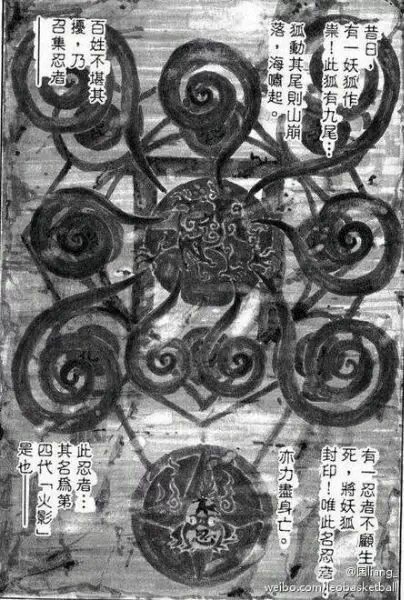 昔日，
有一妖狐作
祟！此狐有九尾…
狐動其尾則山崩
落，海嘯起。
百姓不堪其
擾，乃
召集忍者——
有一忍者不顧生
死，將妖狐
封印！唯此名忍者，
亦力盡身亡。
此忍者…
其名為第
四代「火影」
是也——
@国liang_
weibo.com/leobasketball